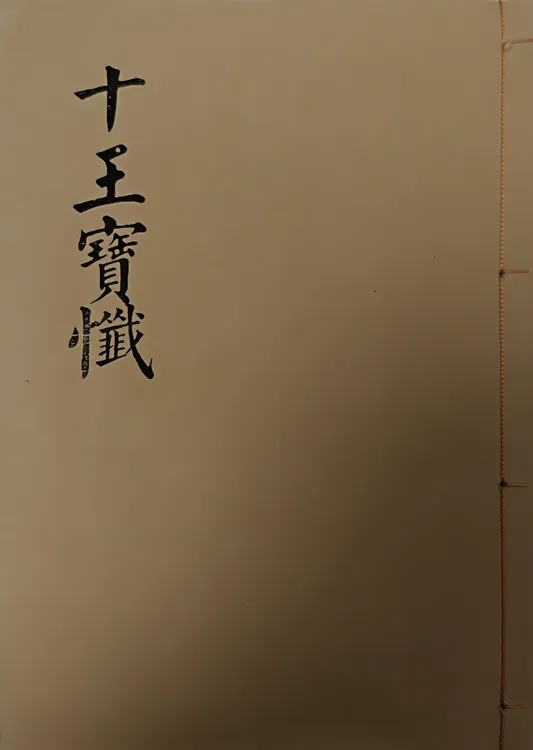 十王寶懺